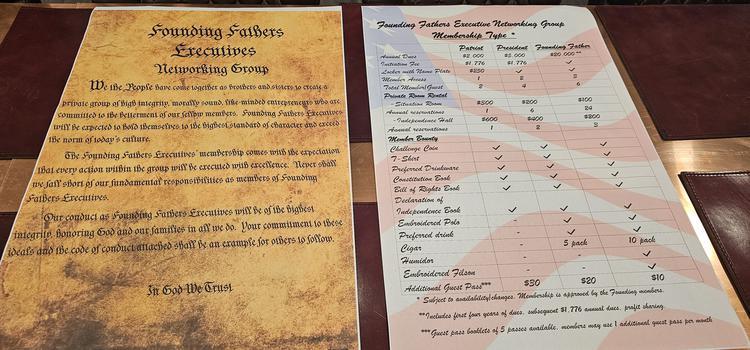 Founding Fathers
Executives
Networking Group
We the People have come together as brothers and sisters to create a
private group of high integrity, morally sound, like-minded entrepreneurs who are
committed to the betterment of our fellow members. Founding Fathers Executives
will be expected to hold themselves to the highest standard of character and exceed
the norm of today's culture.
The Founding Fathers Executives' membership comes with the expectation
that every action within the group will be executed with excellence. Never shall
we fall short of our fundamental responsibilities as members of Founding
Fathers Executives.
Our conduct as Founding Fathers Executives will be of the highest
integrity, honoring God and our families in all we do. Your commitment to these
ideals and the code of conduct attached shall be an example for others to follow.
In God We Trust
Founding Fathers Executive Networking Group
Membership Type *
Patriot President Founding Father
Annual Dues $2,000 $3,000 $20,000**
Initiation Fee $1,776 $1,776 ✓
Locker with Name Plate $250 ✓ ✓
Member Access 1 2 3
Total Member/Guest 2 4 6
Private Room Rental
-Situation Room $300 $200 $100
Annual reservations 1 6 24
-Independence Hall $600 $400 $200
Annual reservations 1 2 3
Member Bounty
Challenge Coin ✓ ✓ ✓
T-Shirt ✓ ✓ ✓
Preferred Drinkware ✓ ✓ ✓
Constitution Book ✓ ✓ ✓
Bill of Rights Book ✓ ✓ ✓
Declaration of
Independence Book ✓ ✓ ✓
Embroidered Polo - ✓ ✓
Preferred drink - ✓ ✓
Cigar - 5 pack 10 pack
Humidor - - ✓
Embroidered Filson - - ✓
Additional Guest Pass*** $30 $20 $10
* Subject to availability/changes. Membership is approved by the Founding members.
**Includes first four years of dues, subsequent $1,776 annual dues, profit sharing.
***Guest pass booklets of 5 passes available, members may use 1 additional guest pass per month